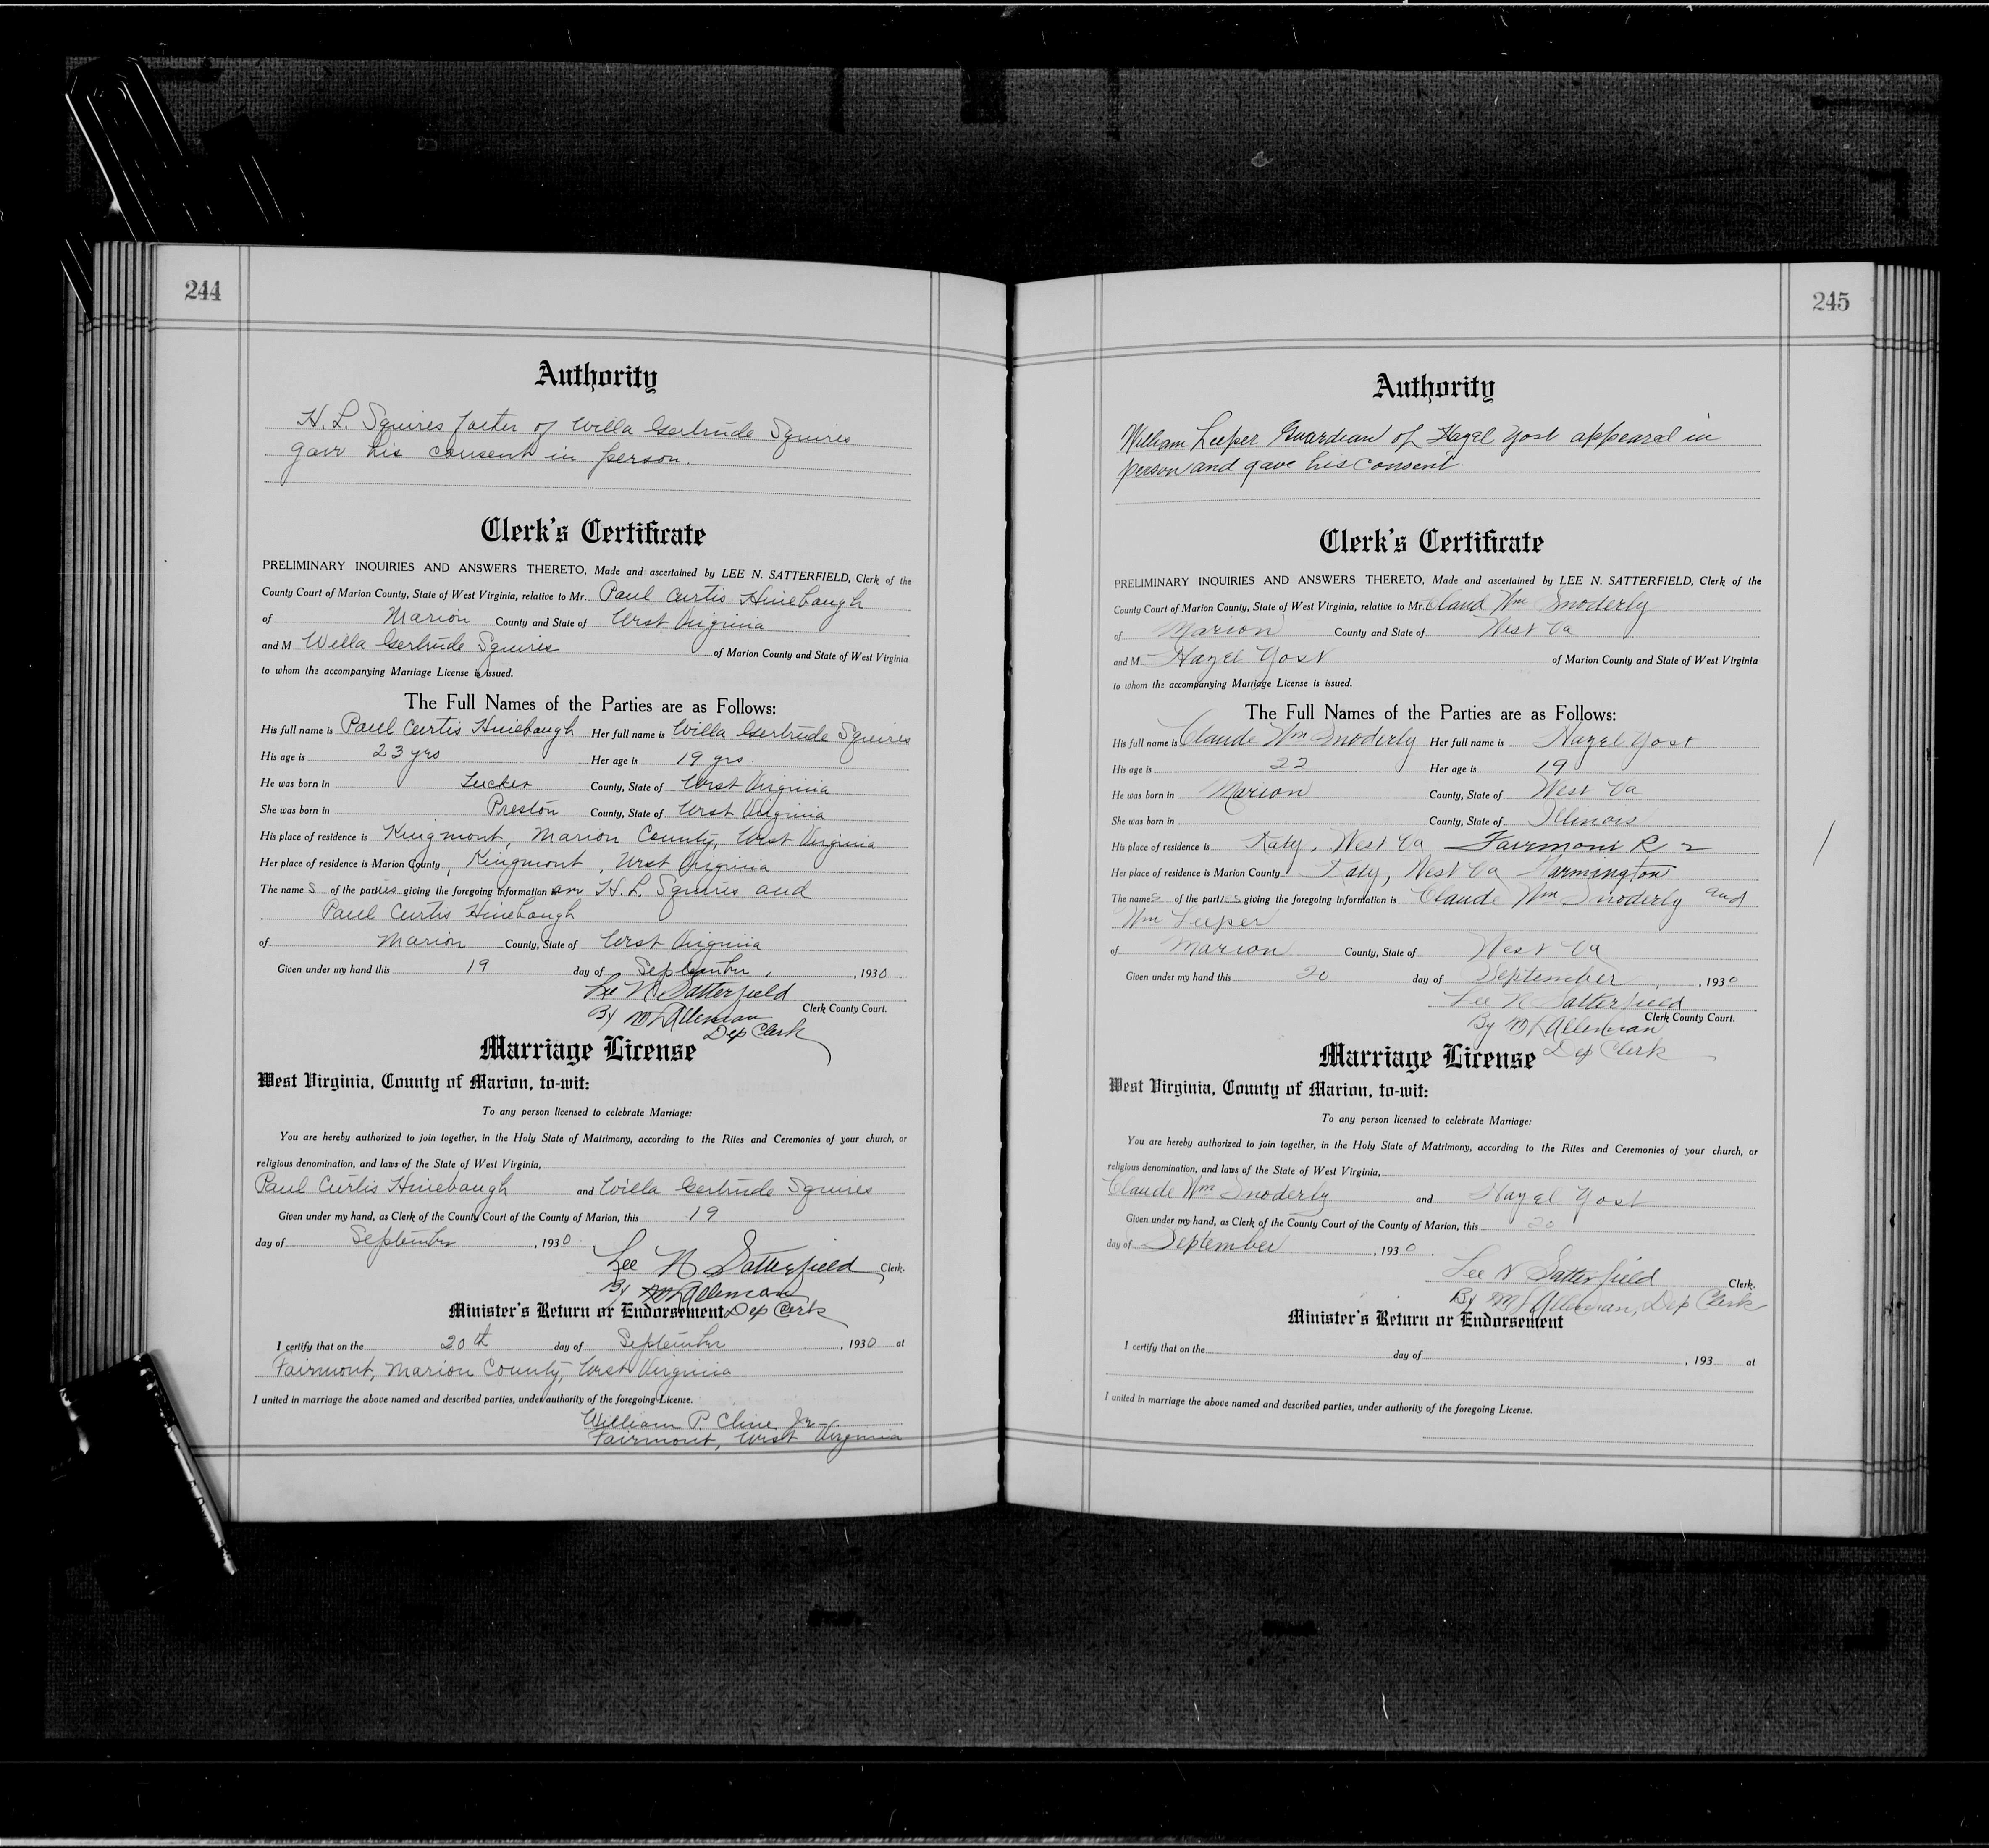 244
Authority
H. L. Squires father of Willa Gertrude Squires
gave his consent in person.
Clerk's Certificate
PRELIMINARY INQUIRIES AND ANSWERS THERETO, Made and ascertained by LEE N. SATTERFIELD, Clerk of the
County Court of Marion County, State of West Virginia, relative to Mr. Paul Curtis Hinebaugh
of Marion County and State of West Virginia
and M Willa Gertrude Squires of Marion County and State of West Virginia
to whom the accompanying Marriage License is issued.
The Full Names of the Parties are as Follows:
His full name is Paul Curtis Hinebaugh Her full name is Willa Gertrude Squires
His age is 23 yrs Her age is 19 yrs.
He was born in Tucker County, State of West Virginia
She was born in Preston County, State of West Virginia
His place of residence is Kingmont, Marion County, West Virginia
Her place of residence is Marion County, Kingmont, West Virginia
The names of the parties giving the foregoing information are H. L. Squires and
Paul Curtis Hinebaugh
of Marion County, State of West Virginia
Given under my hand this 19 day of September, 1930
Lee N Satterfield
Clerk County Court.
By M L Alleman
Dep Clerk
Marriage License
West Virginia, County of Marion, to-wit:
To any person licensed to celebrate Marriage:
You are hereby authorized to join together, in the Holy State of Matrimony, according to the Rites and Ceremonies of your church, or
religious denomination, and laws of the State of West Virginia,
Paul Curtis Hinebaugh and Willa Gertrude Squires
Given under my hand, as Clerk of the County Court of the County of Marion, this 19
day of September, 1930
Lee N Satterfield Clerk.
By M L Alleman
Minister's Return or Endorsement Dep Clerk
I certify that on the 20th day of September, 1930 at
Fairmont, Marion County, West Virginia
I united in marriage the above named and described parties, under authority of the foregoing License.
William P. Cline Jr
Fairmont, West Virginia
245
Authority
William Leeper Guardian of Hazel Yost appeared in
person and gave his consent
Clerk's Certificate
PRELIMINARY INQUIRIES AND ANSWERS THERETO, Made and ascertained by LEE N. SATTERFIELD, Clerk of the
County Court of Marion County, State of West Virginia, relative to Mr. Claud Wm Snoderly
of Marion County and State of West Va
and M Hazel Yost of Marion County and State of West Virginia
to whom the accompanying Marriage License is issued.
The Full Names of the Parties are as Follows:
His full name is Claude Wm Snoderly Her full name is Hazel Yost
His age is 22 Her age is 19
He was born in Marion County, State of West Va
She was born in County, State of Illinois
His place of residence is Katy, West Va Fairmont R 2
Her place of residence is Marion County Katy, West Va Farmington
The names of the parties giving the foregoing information is Claude Wm Snoderly and
Wm Leeper
of Marion County, State of West Va
Given under my hand this 20 day of September, 1930
Lee N Satterfield
Clerk County Court.
By M L Alleman
Dep Clerk
Marriage License
West Virginia, County of Marion, to-wit:
To any person licensed to celebrate Marriage:
You are hereby authorized to join together, in the Holy State of Matrimony, according to the Rites and Ceremonies of your church, or
religious denomination, and laws of the State of West Virginia,
Claude Wm Snoderly and Hazel Yost
Given under my hand, as Clerk of the County Court of the County of Marion, this 20
day of September, 1930.
Lee N Satterfield Clerk.
By M L Alleman, Dep Clerk
Minister's Return or Endorsement
I certify that on the day of, 193 at
I united in marriage the above named and described parties, under authority of the foregoing License.